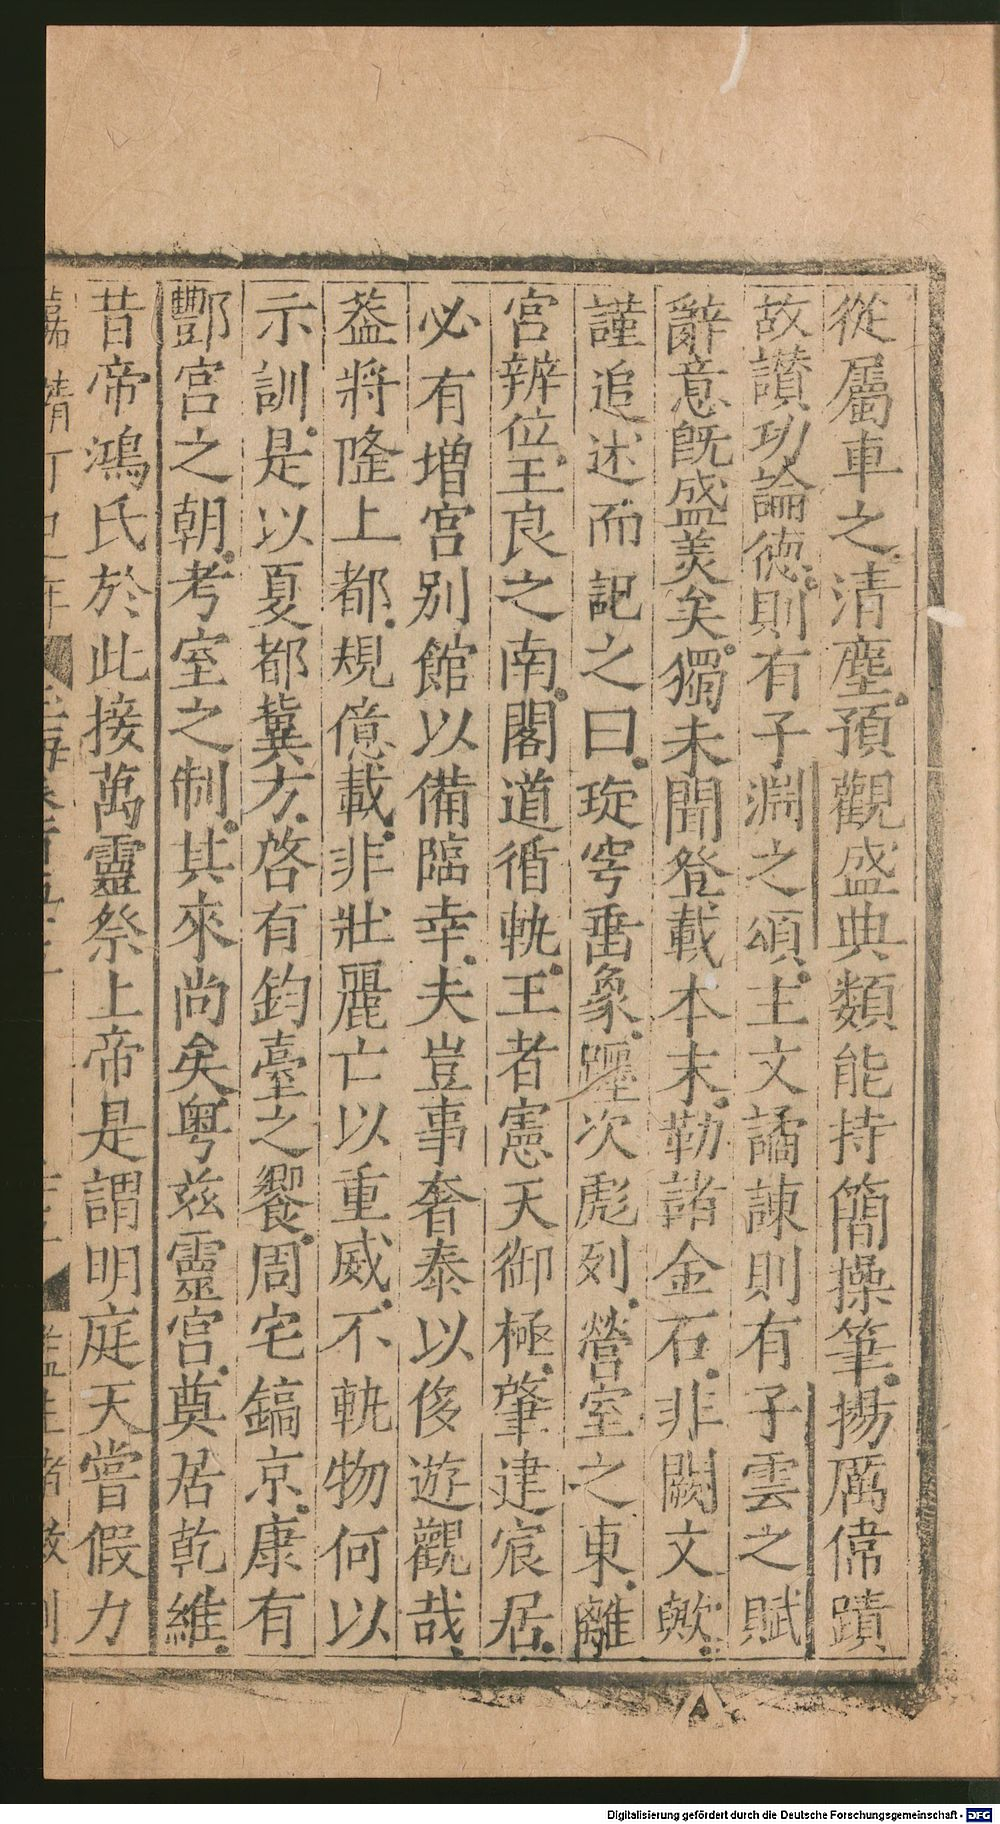 從屬車之清塵預觀盛典類能持簡操筆揚厲偉蹟
故讚功論德則有子淵之頌主文譎諫則有子雲之賦
辭意旣盛美矣獨未聞登載本末勒諸金石非闕文歟
謹追述而記之曰琁穹垂象躔次彪列營室之東離
宮辨位王良之南閣道循軌王者憲天御極肇建宸居
必有增宮別館以備臨幸夫豈事奢泰以侈遊觀哉
葢將隆上都規億載非壯麗亡以重威不軌物何以
示訓是以夏都冀方啓有鈞臺之饗周宅鎬京康有
酆宮之朝考室之制其來尚矣粤兹靈宮奠居乾維
昔帝鴻氏於此接萬靈祭上帝是謂明庭天嘗假力
Digitalisierung gefördert durch die Deutsche Forschungsgemeinschaft - DFG